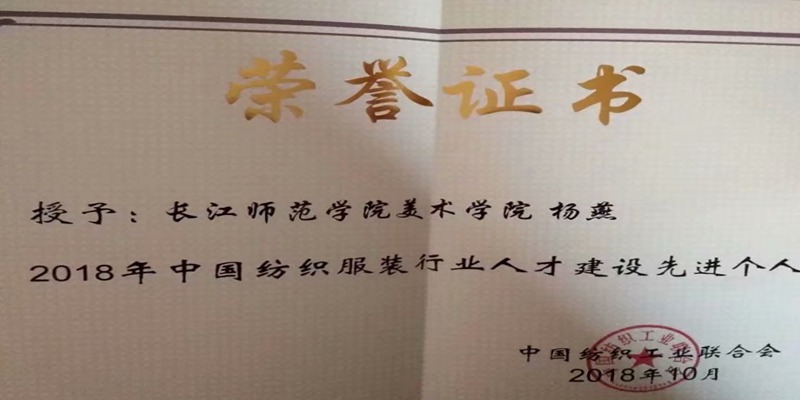 荣誉证书
授予：长江师范学院美术学院 杨燕
2018年中国纺织服装行业人才建设先进个人
中国纺织工业联合会
2018年10月